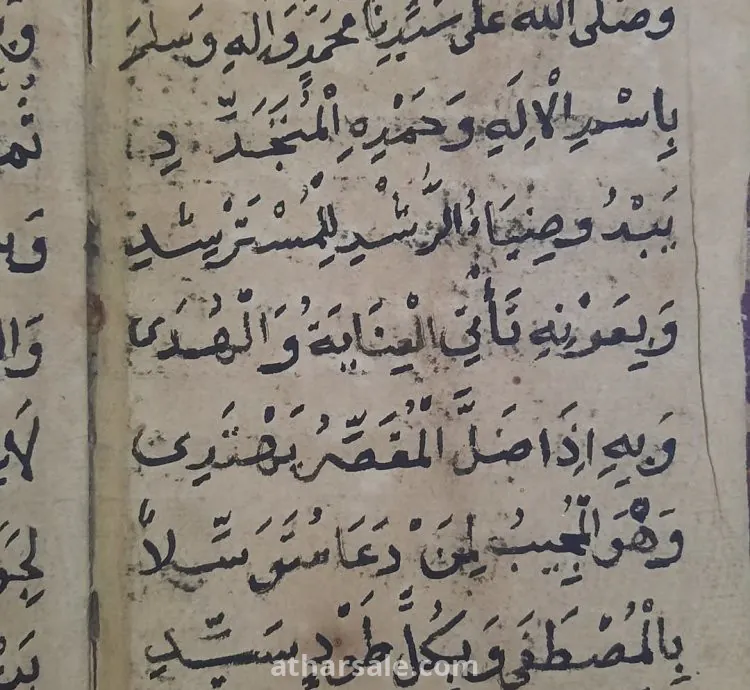 وَصَلَّى اللّٰه عَلَى سَيِّدِنَا مُحَمَّدٍ وَاٰلِهِ وَسَلَّمَ
بِاسْمِ الْاِلَهِ وَحَمْدِهِ الْمُتَجَدِّدِ
يَبْدُو ضِيَاءُ الرُّشْدِ لِلْمُسْتَرْشِدِ
وَبِعَوْنِهِ تَأْتِي الْعِنَايَةُ وَالْهُدَى
وَبِهِ اِذَا ضَلَّ الْمُقَصِّرُ يَهْتَدِى
وَهْوَ الْمُجِيبُ لِمَنْ دَعَا مُتَوَسِّلاً
بِالْمُصْطَفَى وَبِكُلِّ طَوْدٍ سَيِّدِ
atharsale.com